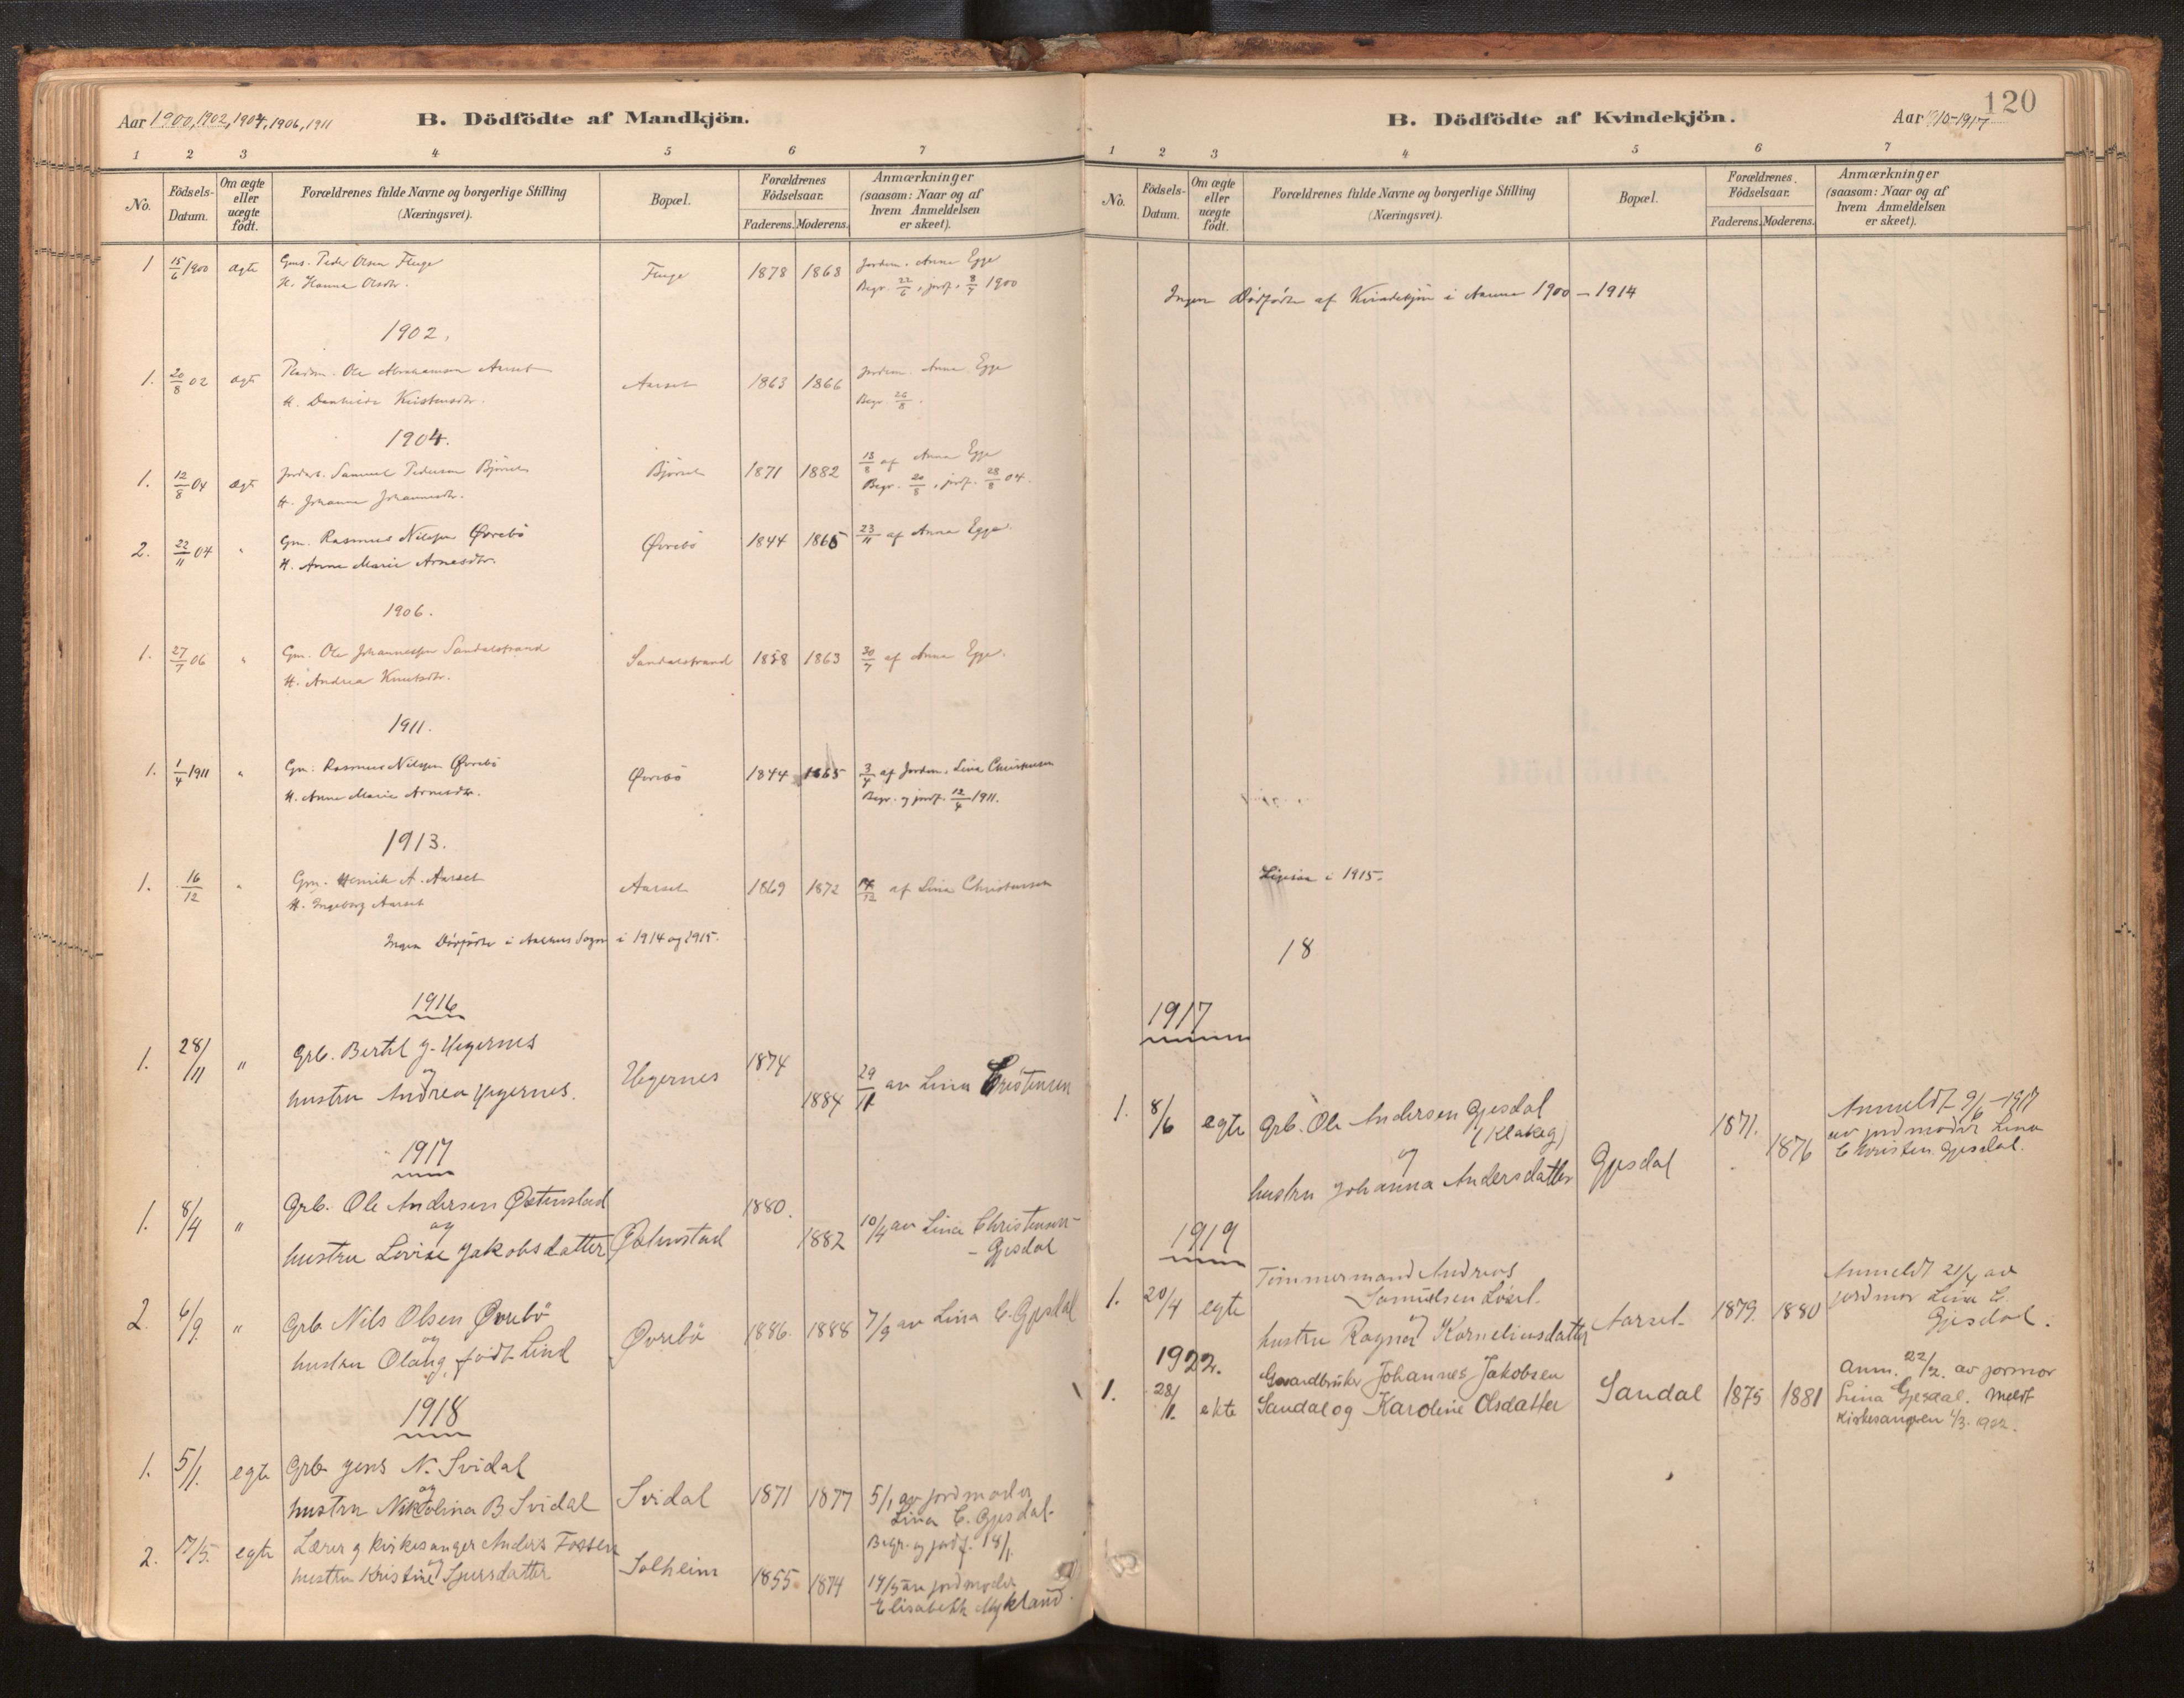 Aar 1900, 1902, 1904, 1906, 1911
B. Dödfödte af Mandkjön.
1 2 3 4 5 6 7
No.
Födsels-Datum.
Om ægte eller uægte födt.
Forældrenes fulde Navne og borgerlige Stilling (Næringsvei).
Bopæl.
Forældrenes Födselsaar.
Faderens. Moderens.
Anmærkninger (saasom: Naar og af hvem Anmeldelsen er skeet).
1 15/6 1900 ægte Gms. Peder Olsen Fluge Fluge 1878 1868 Jordm. Anna Egge
H. Hanna Olsdtr. Begr. 22/6, jordf. 8/7 1900
1902.
1. 20/8 02 ægte Ole Abrahamsen Aarset Aarset 1863 1866 Jordem. Anna Egge
H. Kristensdtr. Begr. 26/8.
1904.
1. 12/8 04 ægte Samuel Pedersen Björset Björset 1871 1882 13/8 af Anna Egge
H. Johanne Johannesdtr. Begr. 20/8, jordf. 28/8 04.
2. 22/11 04 " Gm. Rasmus Nilssen Øvrebö Øvrebö 1844 1865 23/11 af Anna Egge.
H. Anne Marie Arnesdtr.
1906.
1. 27/7 06 " Gm. Ole Johannessen Sandalstrand Sandalstrand 1858 1863 30/7 af Anna Egge.
H. Andrea Knutsdtr.
1911.
1. 1/4 1911 " Gm. Rasmus Nilssen Øvrebö Øvrebö 1844 1865 3/4 af Jordm. Lina Christensen
H. Anne Marie Arnesdtr. Begr. og jordf. 12/4 1911.
1913.
1. 16/12 " Gm. Henrik A. Aarset Aarset 1869 1872 af Lina Christensen
H. Ingeborg Aarset
Ingen Dödfödte i Sogn i 1914 og 1915.
1916
1. 28/11 " Grb. Bertel J. Hegernes Hegernes 1874
og
hustru Andrea Hegernes. 1884 29/11 av Lina Cristensen
1917
1. 8/4 " Grb. Ole Andersen Østenstad 1880.
og
hustru Lovise Jakobsdatter Østenstad 1882 10/4 av Lina Christensen-
- Gjesdal
2. 6/9. " Grb. Nils Olsen Øvrebö Øvrebö 1886. 1888 7/9 av Lina C. Gjesdal
og
hustru Olaug, født Lind
1918
1. 5/1. egte Grb. Jens N. Svidal
og
hustru Nikolina B. Svidal Svidal 1871 1877 5/1 av jordmoder
Lina C. Gjesdal.
Begr. og jordf. 14/1.
2. 17/5. egte Lærer og kirkesanger Anders Fossen
og
hustru Kristine Sjursdatter Solheim 1855 1874 17/5 av jordmoder
Elisabeth Mykland.
120
B. Dödfödte af Kvindekjön.
Aar 1910-1917
1 2 3 4 5 6 7
No.
Födsels-Datum.
Om ægte eller uægte födt.
Forældrenes fulde Navne og borgerlige Stilling (Næringsvei).
Bopæl.
Forældrenes Födselsaar.
Faderens. Moderens.
Anmærkninger (saasom: Naar og af hvem Anmeldelsen er skeet).
Ingen Dödfödte af Kvindekjön i Aarene 1900 - 1914
Ligesaa i 1915.
18
1917
1. 8/6 egte Grb. Ole Andersen Gjesdal
(Klakeg)
og
hustru Johanna Andersdatter Gjesdal 1871. 1876 Anmeldt 9/6 - 1917
av jordmoder Lina
Christen. Gjesdal.
1919
1. 20/4 egte Tömmermand Andreas
Samuelsen
og
hustru Ragna Korneliusdatter Aarset 1879. 1880 Anmeldt 21/4 av
jordmor Lina C.
Gjesdal.
1922.
1. 28/1. ekte Gaardbruker Johannes Jakobsen
Sandal og Karoline Olsdatter Sandal 1875 1881 Anm. 22/2. av jormor
Lina Gjesdal. Meldt
Kirkesangeren 1/3.